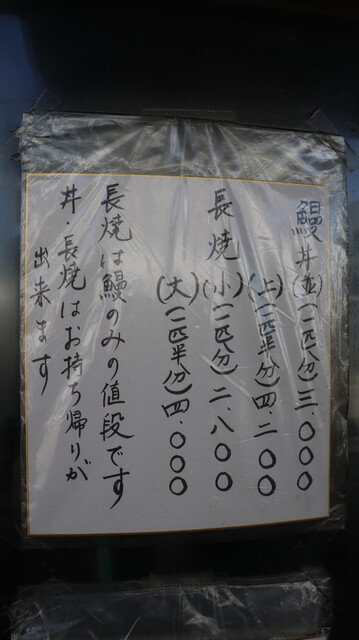 鰻丼(並)(一匹分)三.〇〇〇
(上)(一匹半分)四.二〇〇
長焼(小)(一匹分)二.八〇〇
(大)(一匹半分)四.〇〇〇
長焼は鰻のみの値段です
丼・長焼はお持ち帰りが
出来ます